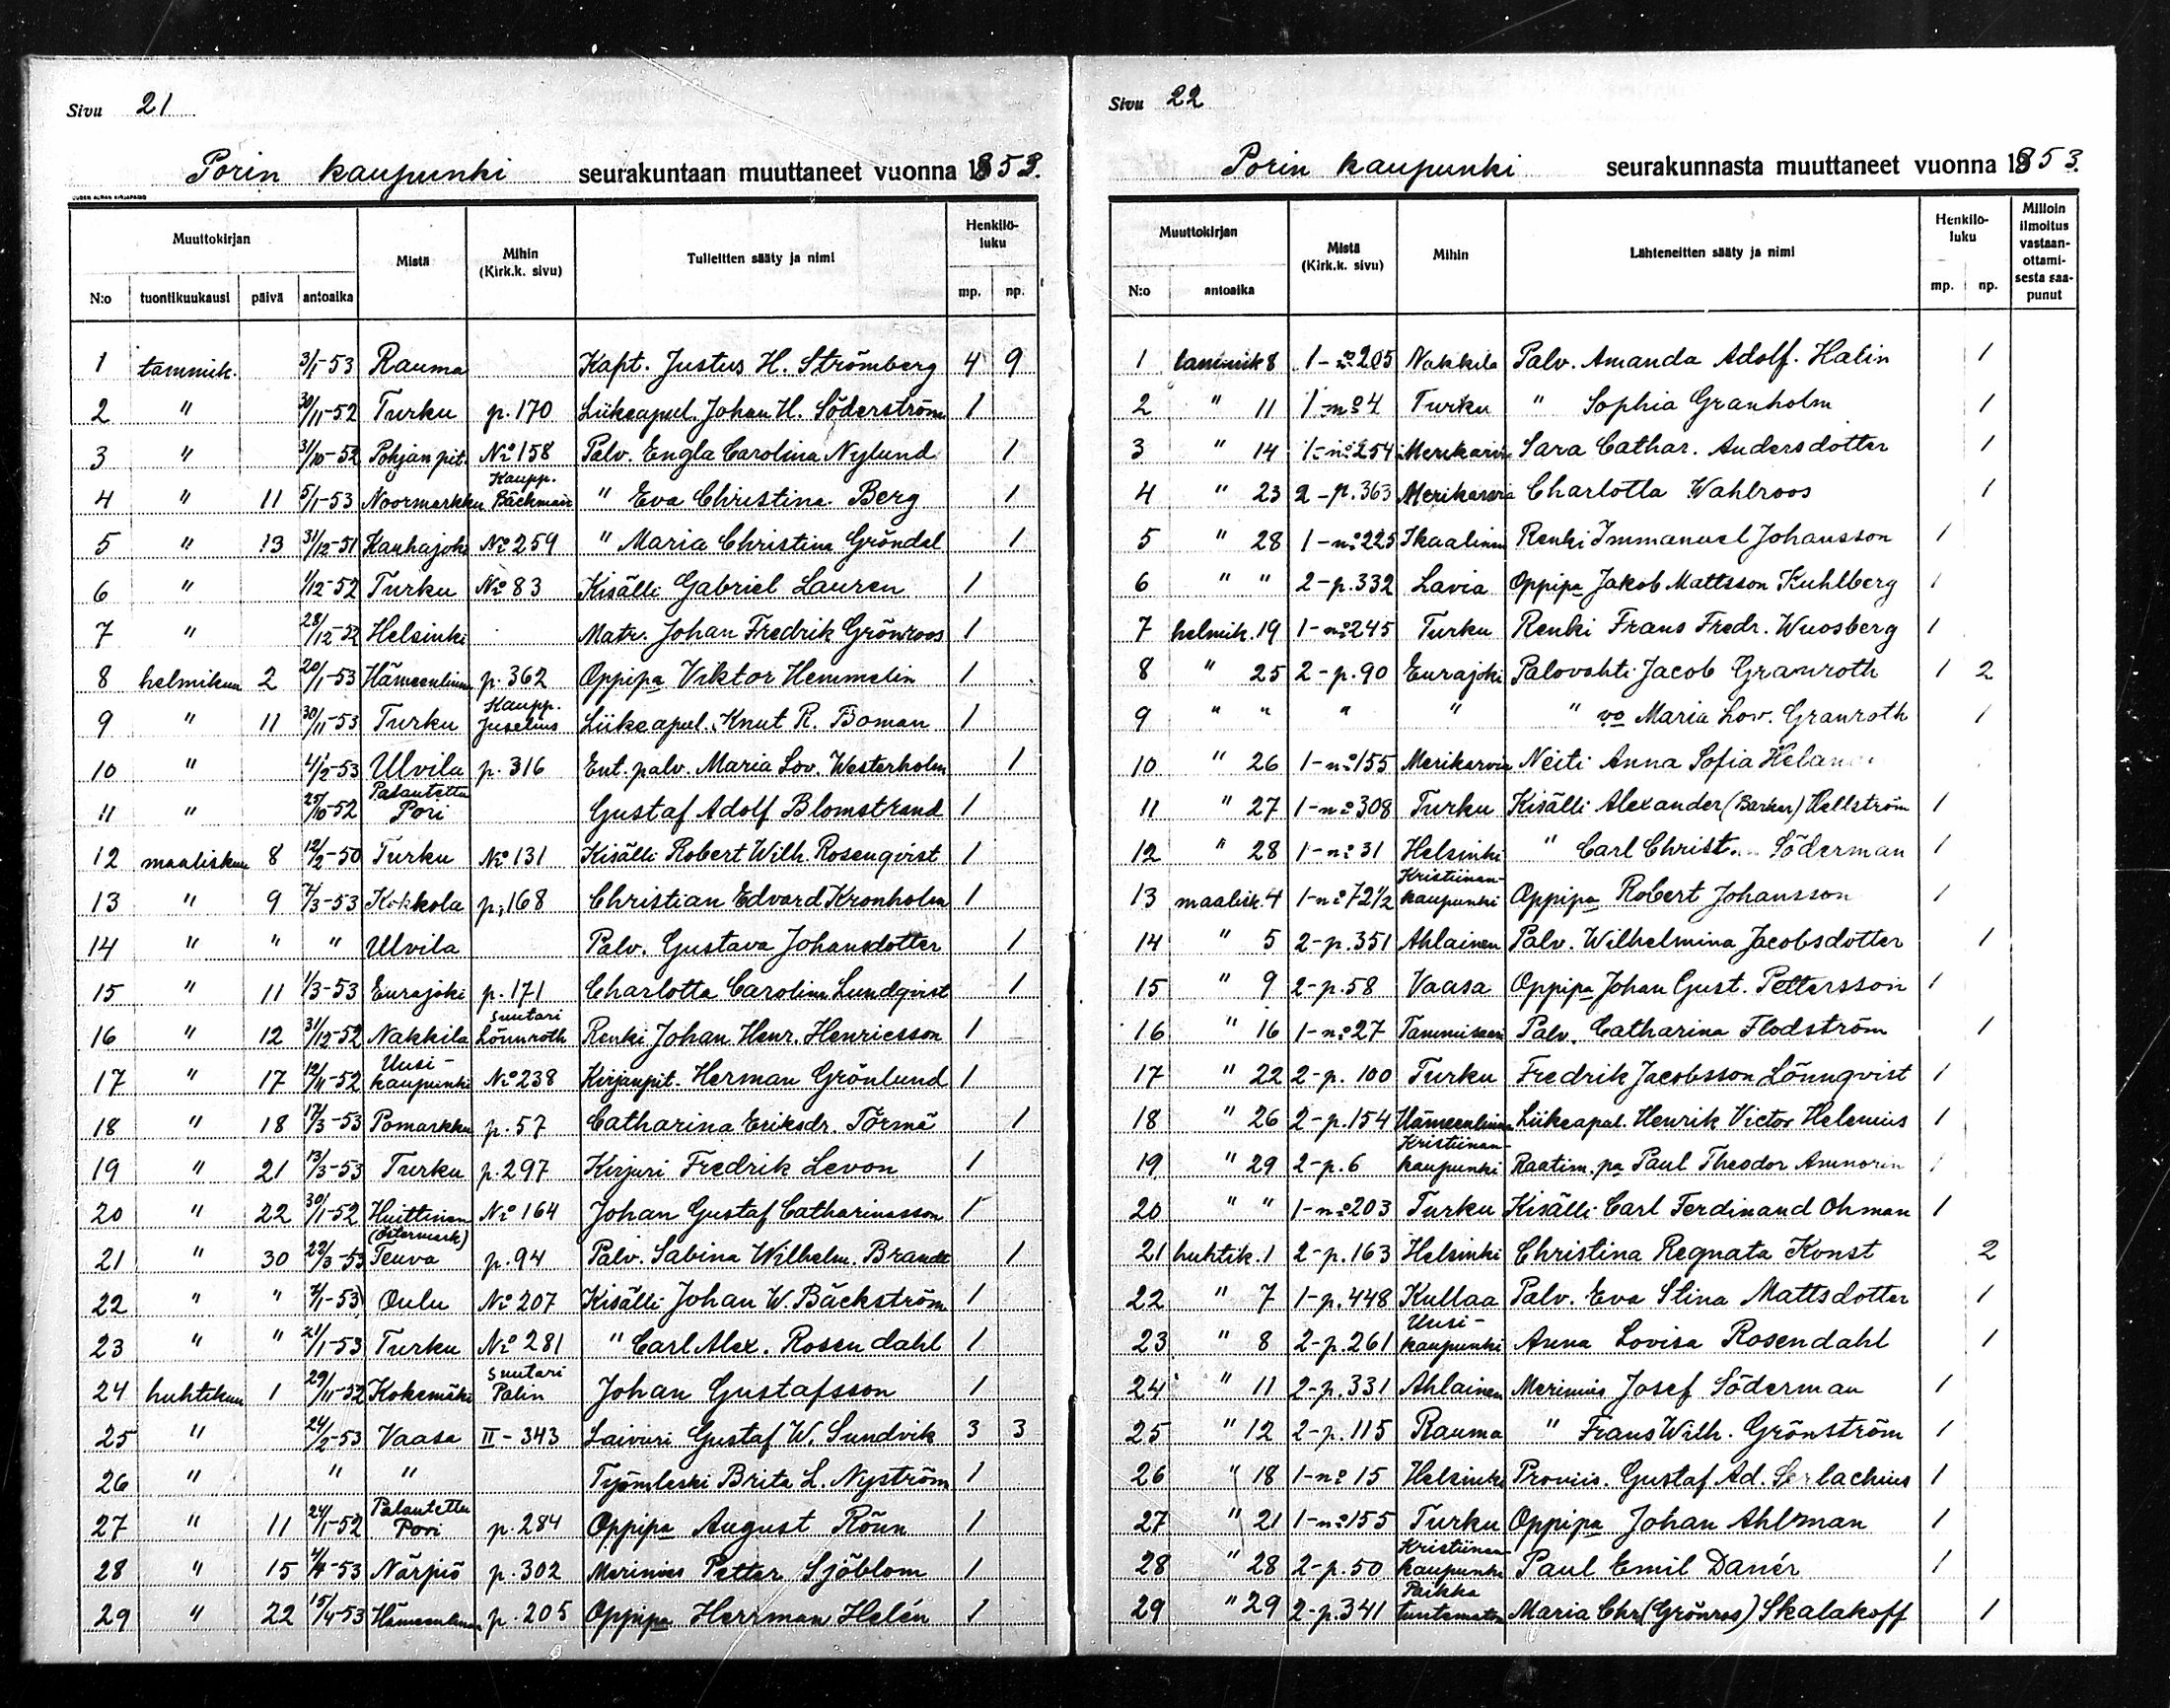 Sivu 21
Porin kaupunki seurakuntaan muuttaneet vuonna 1853.
Muuttokirjan
N:o tuontikuukausi päivä antoaika
Mistä
Mihin (Kirk.k. sivu)
Tulleitten sääty ja nimi
Henkilö-luku
mp. np.
1 tammik. 3/1-53 Rauma Kapt. Justus H. Strömberg 4 9
2 " 30/11-52 Turku p. 170 Liikeapul. Johan H. Söderström 1
3 " 31/10-52 Pohjan pit. No 158 Palv. Engla Carolina Nylund 1
4 " 11 5/1-53 Noormarkku Kaupp. Bäckman " Eva Christina Berg 1
5 " 13 31/12-51 Kauhajoki No 259 " Maria Christina Gröndal 1
6 " 1/12-52 Turku No 83 Kisälli Gabriel Lauren 1
7 " 28/12-52 Helsinki Matr. Johan Fredrik Grönroos 1
8 helmikuu 2 20/1-53 Hämeenlinna p. 362 Oppipa Viktor Hemmelin 1
9 " 11 30/11-53 Turku Kaupp. Juselius Liikeapul. Knut R. Boman 1
10 " 4/2-53 Ulvila p. 316 Ent. palv. Maria Lov. Westerholm 1
11 " 25/10-52 Palautettu Pori Gustaf Adolf Blomstrand 1
12 maaliskuu 8 12/2-50 Turku No 131 Kisälli Robert Wilh. Rosenqvist 1
13 " 9 7/3-53 Kokkola p. 168 Christian Edvard Kronholm 1
14 " " " Ulvila Palv. Gustava Johansdotter 1
15 " 11 1/3-53 Eurajoki p. 171 Charlotta Carolina Lundqvist 1
16 " 12 31/12-52 Nakkila suutari Lönnroth Renki Johan Henr. Henricsson 1
17 " 17 12/11-52 Uusi-kaupunki No 238 Kirjanpit. Herman Grönlund 1
18 " 18 17/3-53 Pomarkku p. 57 Catharina Eriksdr. Törmä 1
19 " 21 13/3-53 Turku p. 297 Kirjuri Fredrik Levon 1
20 " 22 30/1-52 Huittinen No 164 Johan Gustaf Catharinasson 1
21 " 30 22/3-53 (Östermark) Teuva p. 94 Palv. Sabina Wilhelm. Brandt 1
22 " " 7/1-53 Oulu No 207 Kisälli Johan W. Bäckström 1
23 " " 21/1-53 Turku No 281 " Carl Alex. Rosendahl 1
24 huhtikuu 1 29/11-52 Kokemäki suutari Palin Johan Gustafsson 1
25 " 24/2-53 Vaasa II-343 Laivuri Gustaf W. Sundvik 3 3
26 " " " Työmleski Brita L. Nyström 1
27 " 11 24/1-52 Palautettu Pori p. 284 Oppipa August Rönn 1
28 " 15 4/4-53 Närpiö p. 302 Merimies Petter Sjöblom 1
29 " 22 15/4-53 Hämeenlinna p. 205 Oppipa Herrman Helén 1
Sivu 22
Porin kaupunki seurakunnasta muuttaneet vuonna 1853.
Muuttokirjan
N:o antoaika
Mistä (Kirk.k. sivu)
Mihin
Lähteneitten sääty ja nimi
Henkilö-luku
mp. np.
Milloin ilmoitus vastaan-ottami-sesta saa-punut
1 tammik 8 1-no 205 Nakkila Palv. Amanda Adolf. Halin 1
2 " 11 1-no 4 Turku " Sophia Granholm 1
3 " 14 1-no 254 Merikarvia Sara Cathar. Andersdotter 1
4 " 23 2-p. 363 Merikarvia Charlotta Wahlroos 1
5 " 28 1-no 225 Ikaalinen Renki Immanuel Johansson 1
6 " " 2-p. 332 Lavia Oppipa Jakob Mattsson Kuhlberg 1
7 helmik. 19 1-no 245 Turku Renki Frans Fredr. Wuosberg 1
8 " 25 2-p. 90 Eurajoki Palovahti Jacob Granroth 1 2
9 " " " " " vo Maria Lov. Granroth 1
10 " 26 1-no 155 Merikarvia Neiti Anna Sofia
11 " 27 1-no 308 Turku Kisälli Alexander (Barkar) Hellström 1
12 " 28 1-no 31 Helsinki " Carl Christ. Söderman 1
13 maalisk. 4 1-no 72 1/2 Kristiinan-kaupunki Oppipa Robert Johansson 1
14 " 5 2-p. 351 Ahlainen Palv. Wilhelmina Jacobsdotter 1
15 " 9 2-p. 58 Vaasa Oppipa Johan Gust. Pettersson 1
16 " 16 1-no 27 Tammisaari Palv. Catharina Flodström 1
17 " 22 2-p. 100 Turku Fredrik Jacobsson Lönnqvist 1
18 " 26 2-p. 154 Hämeenlinna Liikeapul. Henrik Victor Helenius 1
19 " 29 2-p. 6 Kristiinan-kaupunki Raatim. pa Paul Theodor Ammorin 1
20 " " 1-no 203 Turku Kisälli Carl Ferdinand Ohman 1
21 huhtik. 1 2-p. 163 Helsinki Christina Regnata Konst 2
22 " 7 1-p. 448 Kullaa Palv. Eva Stina Mattsdotter 1
23 " 8 2-p. 261 Uusi-kaupunki Anna Lovisa Rosendahl 1
24 " 11 2-p. 331 Ahlainen Merimies Josef Söderman 1
25 " 12 2-p. 115 Rauma " Frans Wilh. Grönström 1
26 " 18 1-no 15 Helsinki Proviis. Gustaf Ad. Serlachius 1
27 " 21 1-no 155 Turku Oppipa Johan Ahlman 1
28 " 28 2-p. 50 Kristiinan-kaupunki Paul Emil Danér 1
29 " 29 2-p. 341 Paikka tuntematon Maria Chr (Grönros) Skalakoff 1